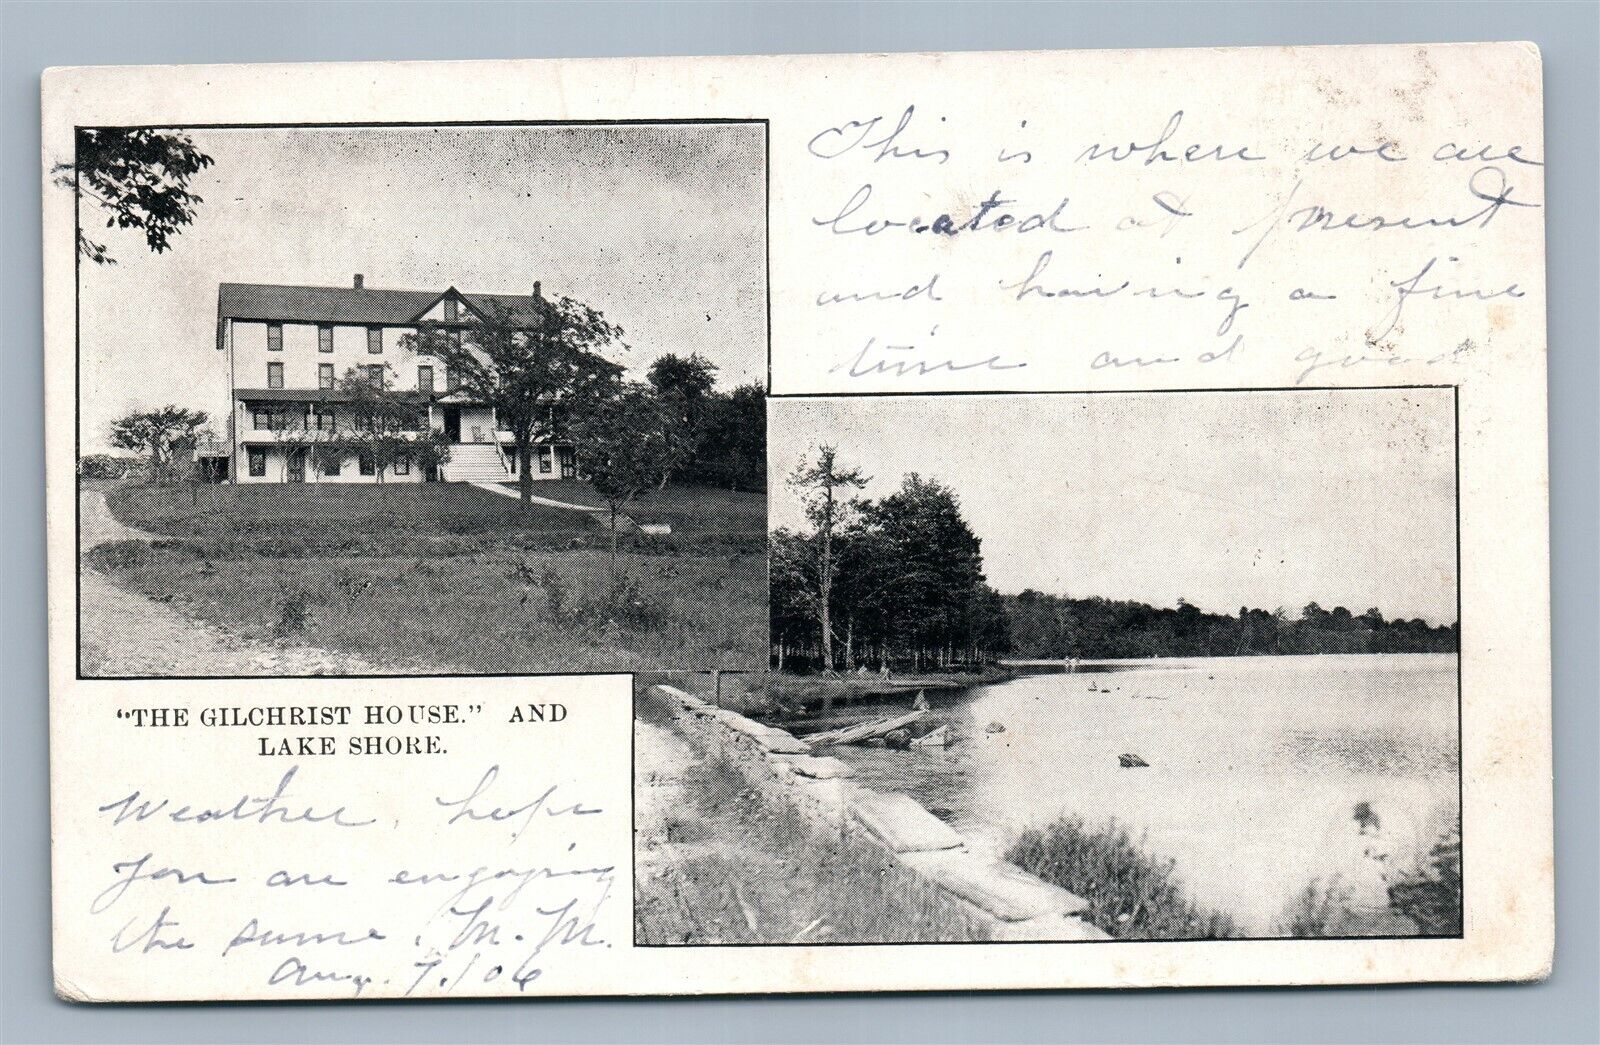 This is where we are
located at present
and having a fine
time and good
"THE GILCHRIST HOUSE." AND
LAKE SHORE.
Weather, hope
you are engoying
the same. M. M.
Aug. 7/06